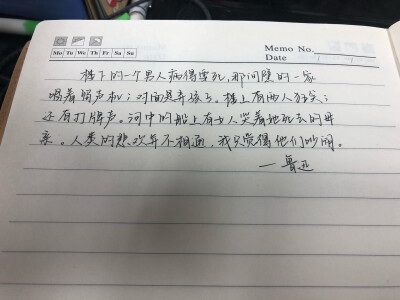 Memo No.
Mo Tu We Th Fr Sa Su
Date
楼下的一个男人病得要死,那间壁的一家
唱着留声机;对面是弄孩子。楼上有两人狂笑;
还有打牌声。河中的船上有女人哭着她死去的母
亲。人类的悲欢并不相通,我只觉得他们吵闹。
—鲁迅